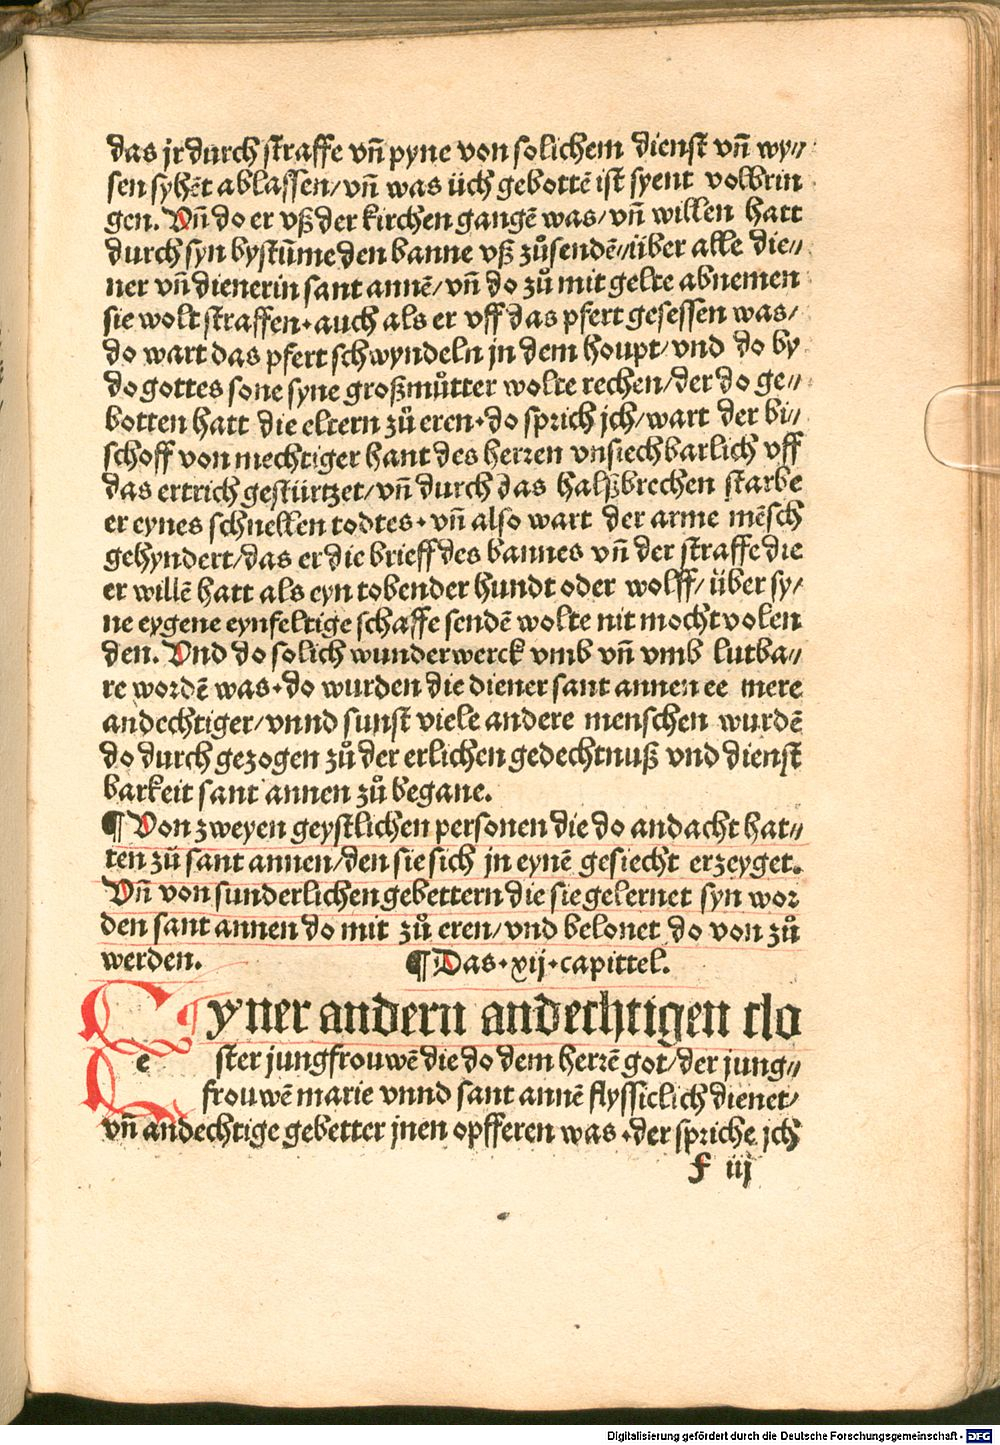 das jr durch straffe vn̄ pyne von solichem dienst vn̄ wy⸗
sen syhēt ablassen/ vn̄ was üch gebottē ist syent volbrin
gen. Vn̄ do er vß der kirchen gangē was/ vn̄ willen hatt
durch syn bystūme den banne vß zůsendē/ über alle die⸗
ner vn̄ dienerin sant annē/ vn̄ do zů mit gelte abnemen
sie wolt straffen. auch als er vff das pfert gesessen was/
do wart das pfert schwyndeln jn dem houpt/ vnd do by
do gottes sone syne großmůtter wolte rechen/ der do ge⸗
botten hatt die eltern zů eren. do sprich jch/ wart der bi⸗
schoff von mechtiger hant des herren vnsiechbarlich vff
das ertrich gestürtzet/ vn̄ durch das halßbrechen starbe
er eynes schnellen todtes. vn̄ also wart der arme mēsch
gehyndert/ das er die brieff des bannes vn̄ der straffe die
er willē hatt als eyn tobender hundt oder wolff/ über sy⸗
ne eygene eynfeltige schaffe sendē wolte nit mocht volen
den. Vnd do solich wunderwerck vmb vn̄ vmb lutba⸗
re wordē was. do wurden die diener sant annen ee mere
andechtiger/ vnnd sunst viele andere menschen wurdē
do durch gezogen zů der erlichen gedechtnuß vnd dienst
barkeit sant annen zů begane.
¶ Von zweyen geystlichen personen die do andacht hat⸗
ten zů sant annen/ den sie sich jn eynē gesiecht erzeyget.
Vn̄ von sunderlichen gebettern die sie gelernet syn wor
den sant annen do mit zů eren/ vnd belonet do von zů
werden. ¶ Das. xij. capittel.
eyner andern andechtigen clo
ster jungfrouwē die do dem herrē got/ der jung⸗
frouwē marie vnnd sant annē flyssiclich dienet/
vn̄ andechtige gebetter jnen opfferen was. der spriche jch
f iij
Digitalisierung gefördert durch die Deutsche Forschungsgemeinschaft - DFG